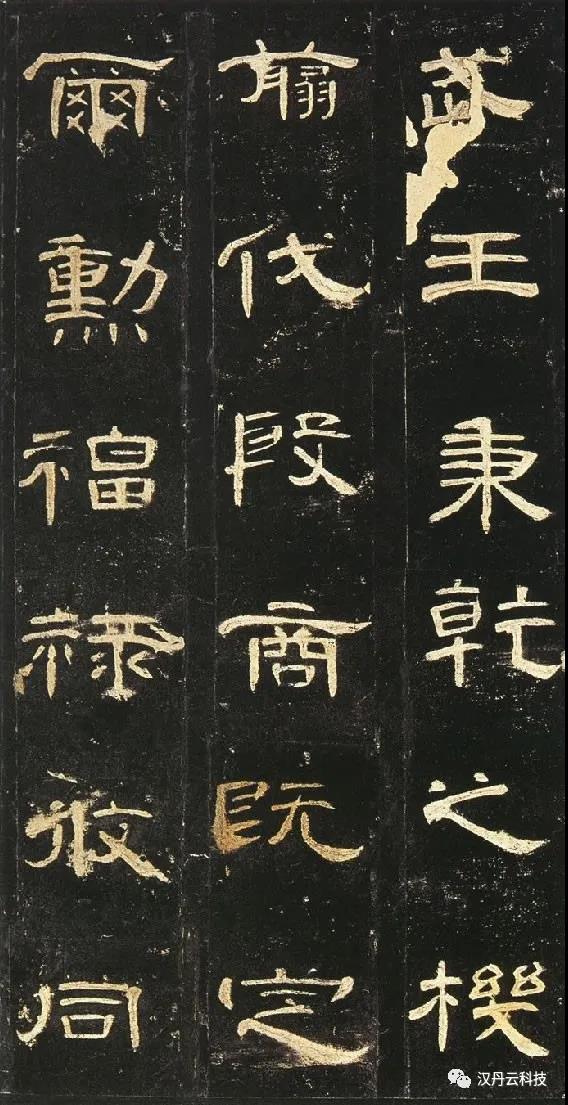 武王秉乾之機
翦伐殷商既定
爾勳福祿攸同
汉丹云科技